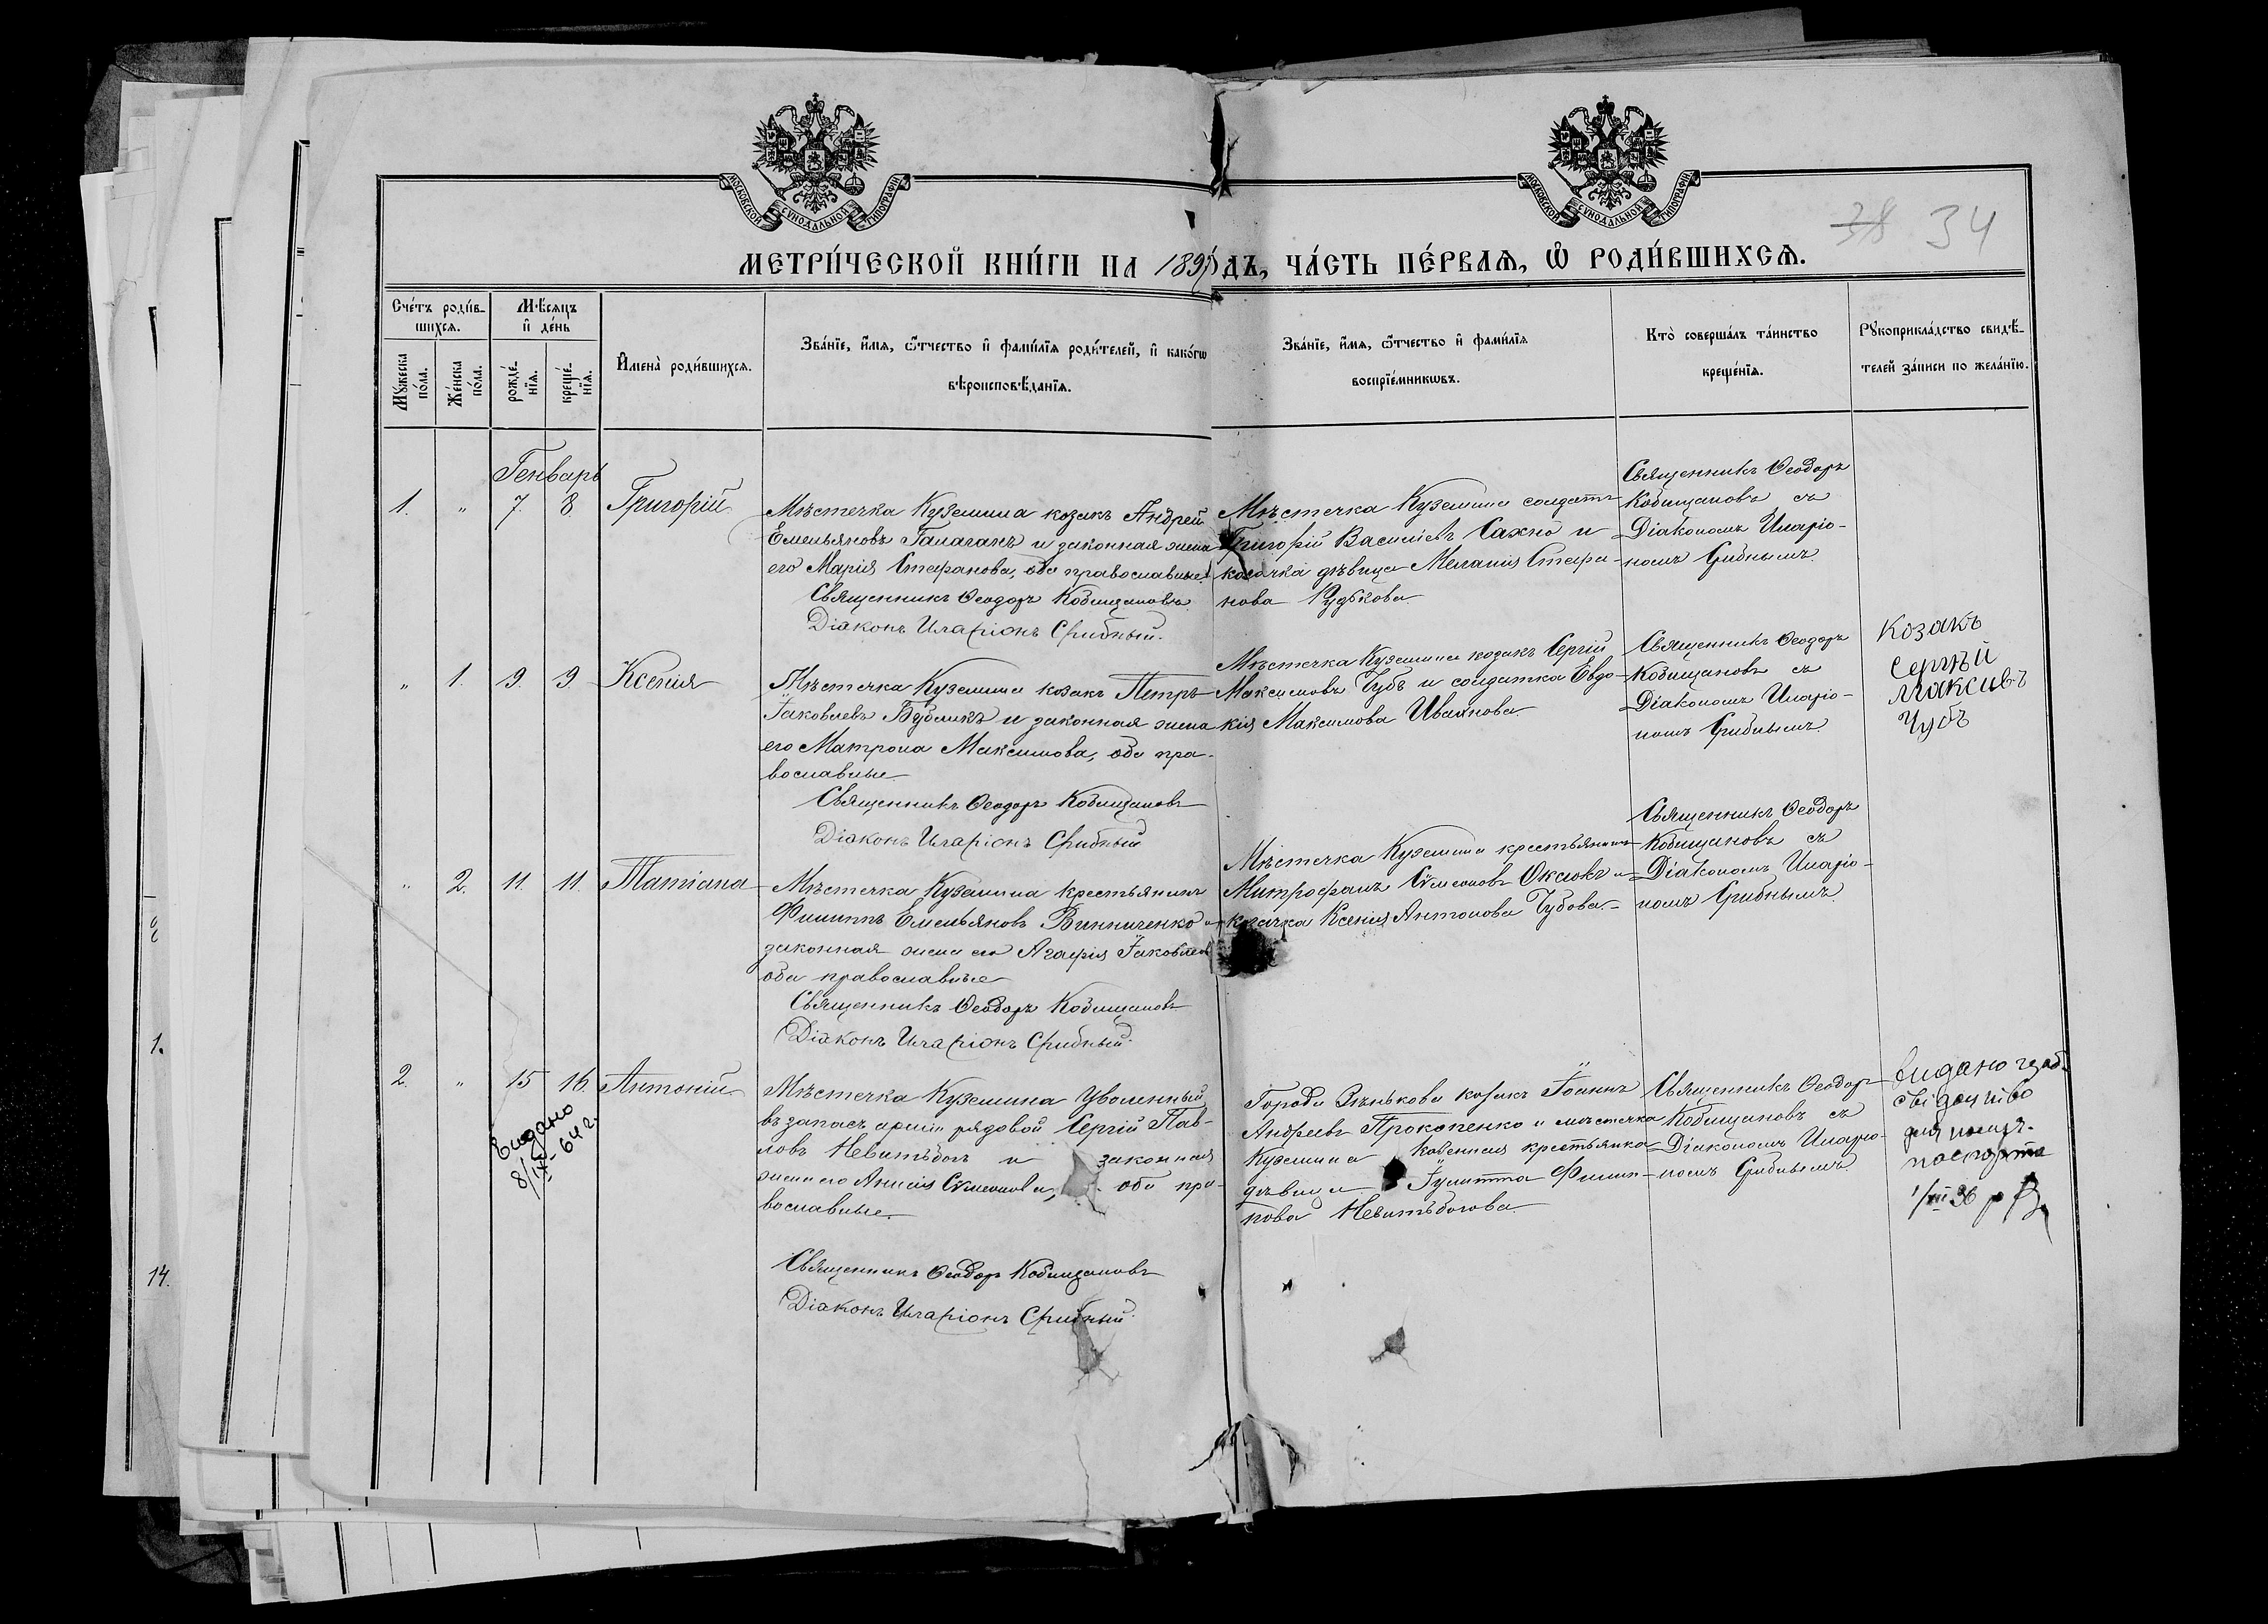 МОСКОВСКОЙ СѴНОДАЛЬНОЙ ТИПОГРАФІИ
МОСКОВСКОЙ СѴНОДАЛЬНОЙ ТИПОГРАФІИ
38 34
МЕТРИ́ЧЕСКОЙ КНИ́ГИ НА 1897 ДЪ, ЧА́СТЬ ПЕ́РВАѦ, Ѡ РОДИ́ВШИХСѦ.
Счётъ роди́в-
шихсѧ.
Мѣ́сѧцъ
и҆ де́нь
Мꙋ́жеска
по́ла.
Же́нска
по́ла.
рожде́-
нїѧ.
креще́-
нїѧ.
И҆мена̀ роди́вшихсѧ.
Зва́нїе, и҆́мѧ, ѻ҆́тчество и҆ фами́лїѧ роди́телей, и҆ како́гѡ
вѣроисповѣ́данїѧ.
Зва́нїе, и҆́мѧ, ѻ҆́тчество и҆ фами́лїѧ
воспрїе́мникѡвъ.
Кто̀ соверша́лъ та́инство
креще́нїѧ.
Рꙋкоприкла́дство свидѣ́-
телей за́писи по жела́нїю.
Генварь
1. " 7. 8. Григорій
Мѣстечка Куземина козакъ Андрей
Емельяновъ Галаганъ и законная жена
его Марія Стефанова, оба православные.
Священникъ Ѳеодоръ Кобищановъ
Діаконъ Иларіонъ Срибный.
Мѣстечка Куземина солдатъ
Григорій Василіевъ Сахно и
козачка дѣвица Меланія Стефа-
нова Рудькова.
Священникъ Ѳеодоръ
Кобищановъ съ
Діакономъ Иларіо-
номъ Срибнымъ.
" 1. 9. 9. Ксенія
Мѣстечка Куземина козакъ Петръ
Іаковлевъ Бубликъ и законная жена
его Матрона Максимова, оба пра-
вославные
Священникъ Ѳеодоръ Кобищановъ
Діаконъ Иларіонъ Срибный
Мѣстечка Куземина козакъ Сергій
Максимовъ Чубъ и солдатка Евдо-
кія Максимова Иванова.
Священникъ Ѳеодоръ
Кобищановъ съ
Діакономъ Иларіо-
номъ Срибнымъ.
Козакъ
Сергѣй
Максивъ
Чубъ
" 2. 11. 11. Татіана
Мѣстечка Куземина крестьянинъ
Филиппъ Емельяновъ Винниченко и
законная жена его Агафія Іаковлев
оба православные
Священникъ Ѳеодоръ Кобищановъ
Діаконъ Иларіонъ Срибный.
Мѣстечка Куземина крестьянинъ
Митрофанъ Сѵмеоновъ и
козачка Ксенія Антонова Чубова.
Священникъ Ѳеодоръ
Кобищановъ съ
Діакономъ Иларіо-
номъ Срибнымъ.
2. " 15 16. Антоній
Видано
8/IX-64 г.
Мѣстечка Куземина уволенный
въ запасъ арміи рядовой Сергій Пав-
ловъ Невитѣбогъ и законная
жена его Анисія Сѵмеонова, оба пра-
вославные.
Священникъ Ѳеодоръ Кобищановъ
Діаконъ Иларіонъ Срибный.
Города Зѣнькова козакъ Іоаннъ
Андреевъ Прокопенко и мѣстечка
Куземина казенная крестьянка
дѣвица Іулитта Филип-
пова Невитѣбогова.
Священникъ Ѳеодоръ
Кобищановъ съ
Діакономъ Иларіо-
номъ Срибнымъ
видано
свідоцтво
для
паспорта
1. 14.